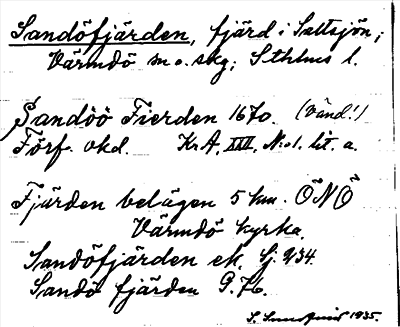 Sandöfjärden, fjärd i Saltsjön;
Värmdö sn o. skg; Sthlms l.
Sandöö Fierden 1670. (Vänd!)
Förf. okd. KrA. XIII. N:o1. lit. a.
Fjärden belägen 5 km. ÖNÖ
Värmdö kyrka.
Sandöfjärden ek. Sj. 234.
Sandö fjärden G.76.
1935.